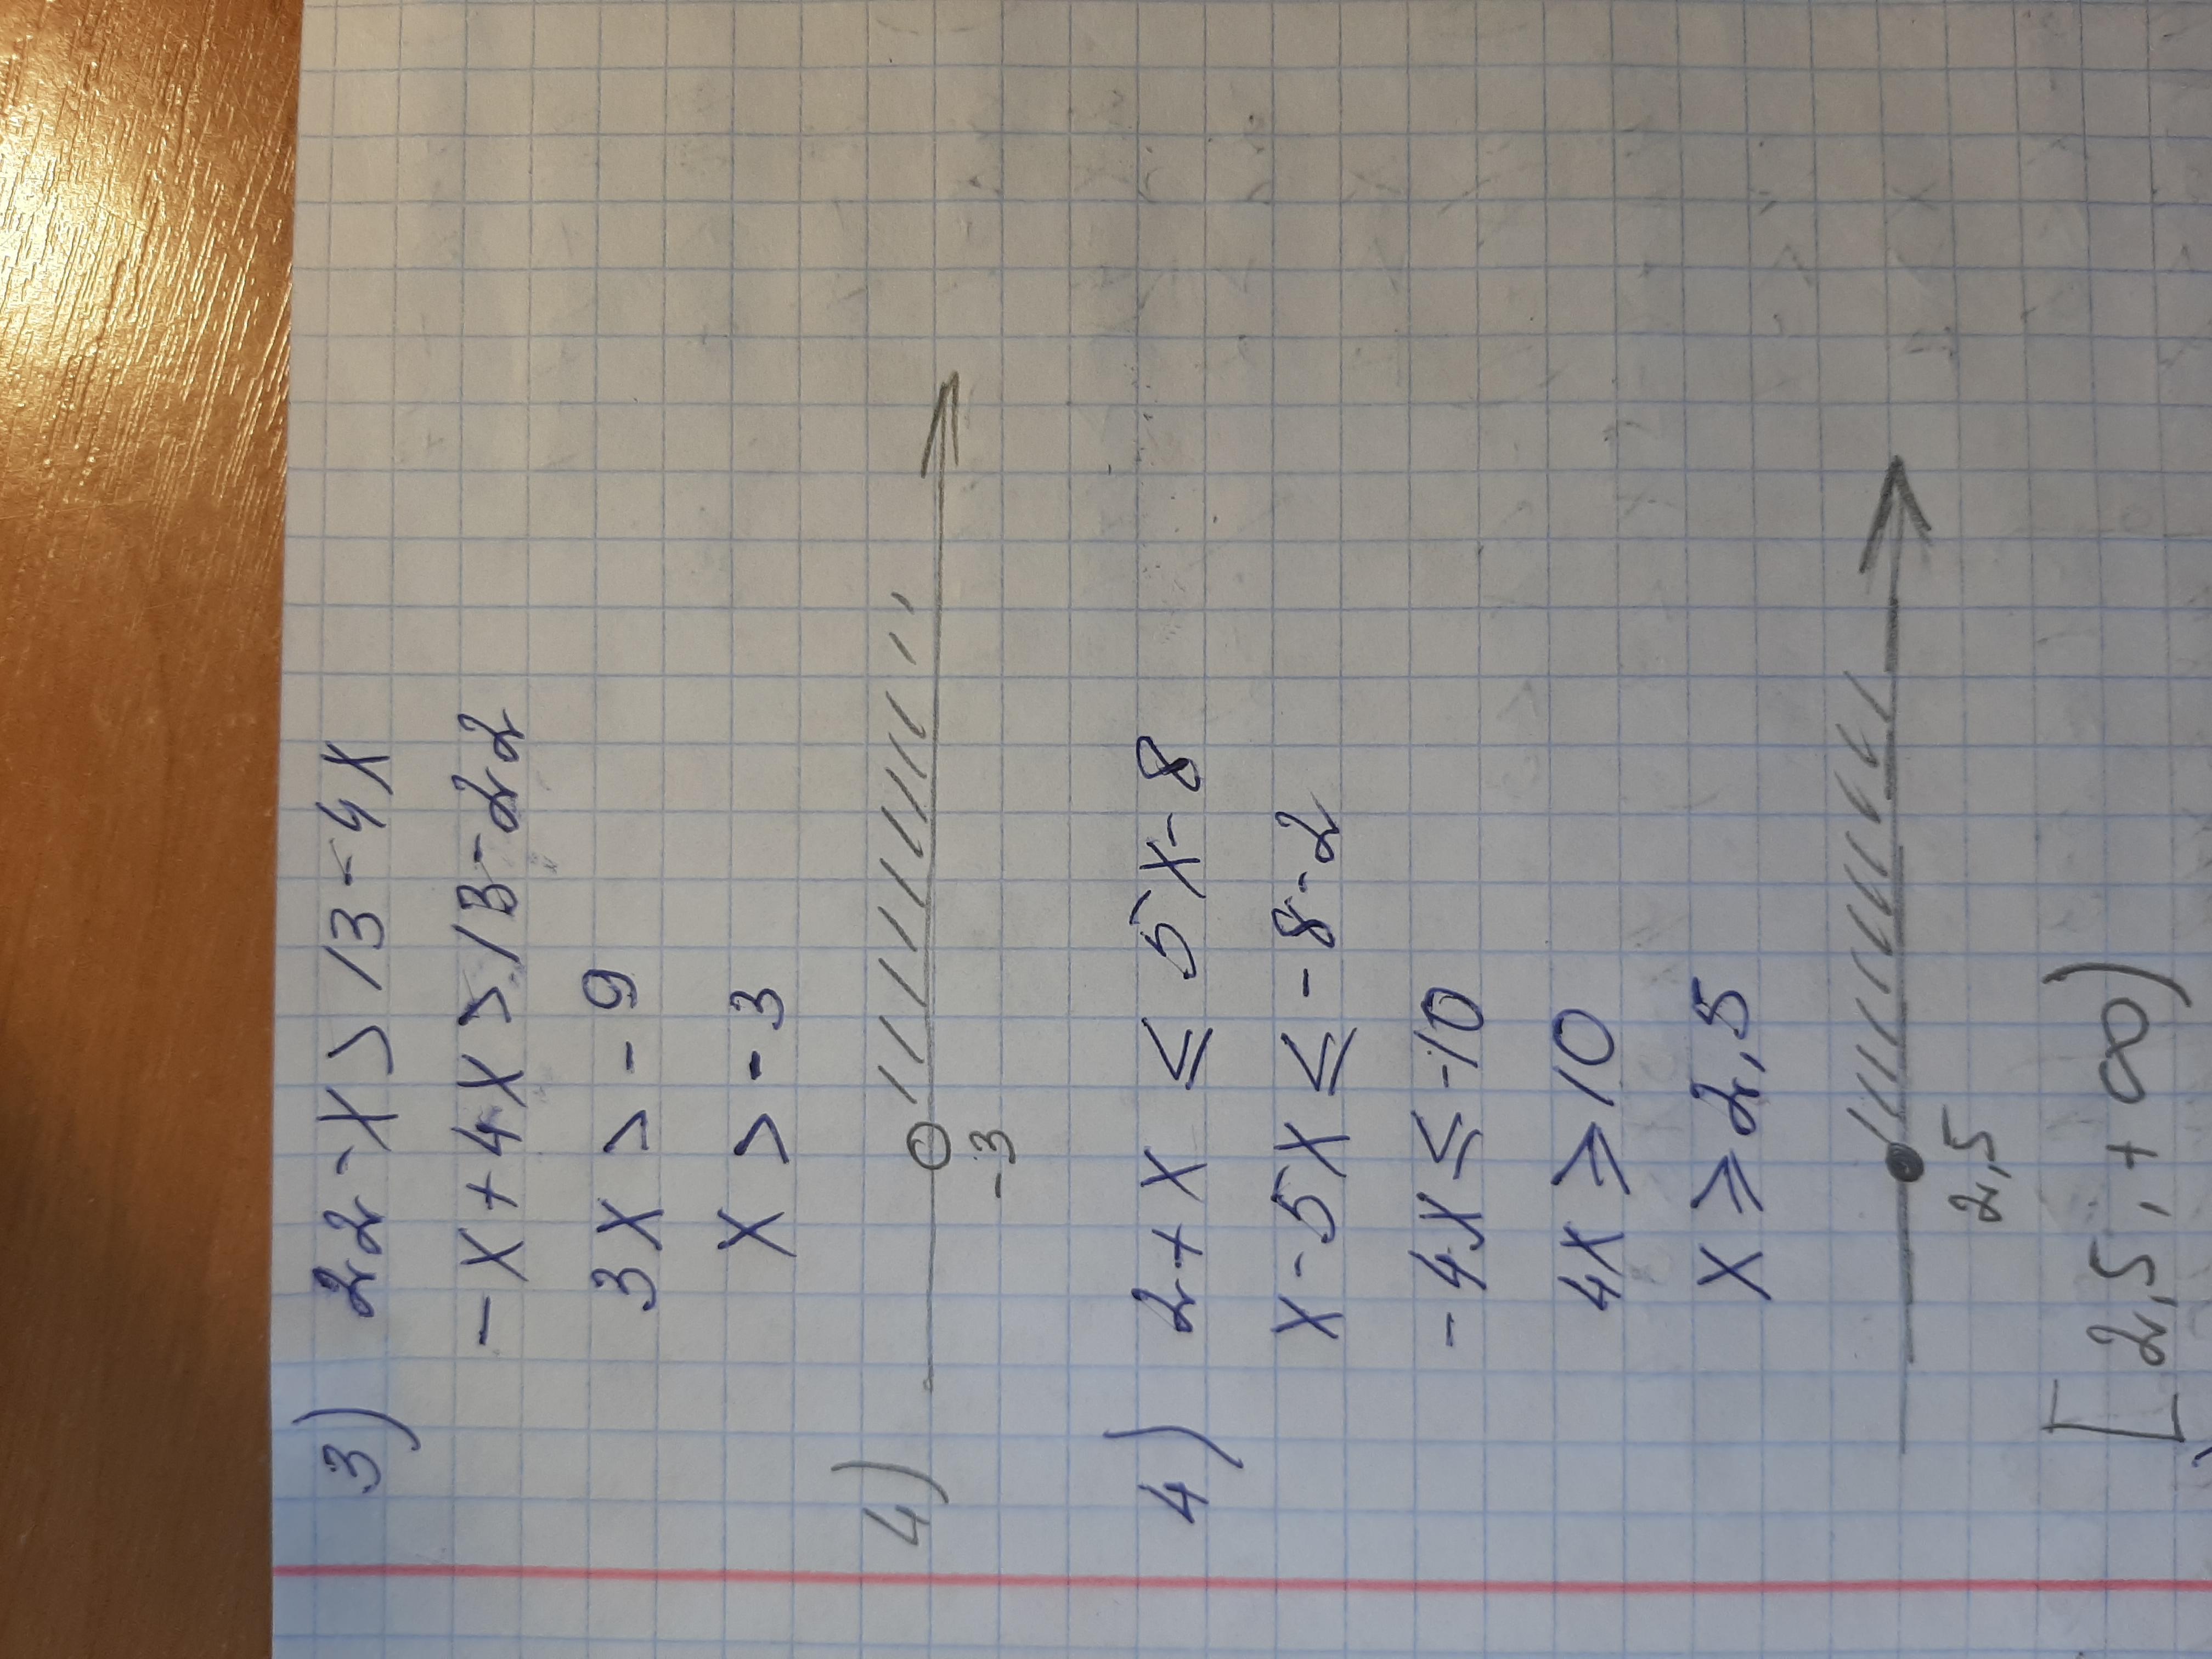 3) 22-x>13-4x
-x+4x>13-22
3x>-9
x>-3
4)
-3
4) 2+x ≤ 5x-8
x-5x ≤ -8-2
-4x ≤ -10
4x ≥ 10
x ≥ 2,5
2,5
[2,5, +∞)